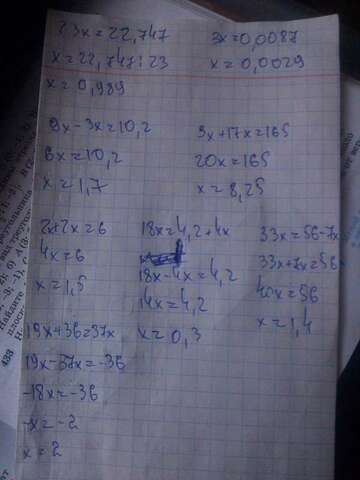 23x = 22,747
x = 22,747 : 23
x = 0,989
3x = 0,0087
x = 0,0029
9x - 3x = 10,2
6x = 10,2
x = 1,7
3x + 17x = 165
20x = 165
x = 8,25
2x + 2x = 6
4x = 6
x = 1,5
18x = 4,2 + 4x
18x - 4x = 4,2
14x = 4,2
x = 0,3
33x = 56 - 7x
33x + 7x = 56
40x = 56
x = 1,4
19x + 36 = 37x
19x - 37x = -36
-18x = -36
-x = -2
x = 2
Найдите
438